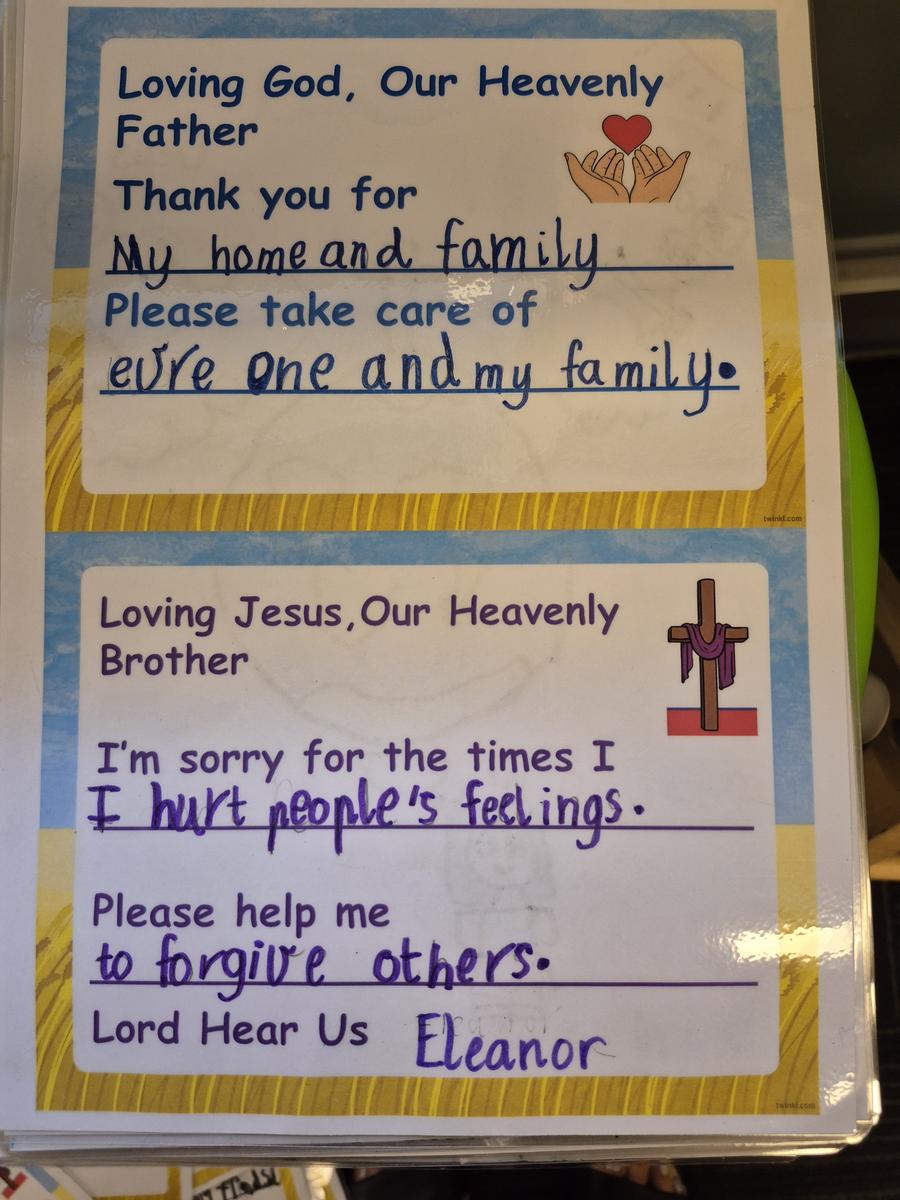 Loving God, Our Heavenly
Father
Thank you for
My home and family
Please take care of
evre one and my family.
twinkl.com
Loving Jesus, Our Heavenly
Brother
I'm sorry for the times I
I hurt people's feelings.
Please help me
to forgive others.
Lord Hear Us Eleanor
twinkl.com